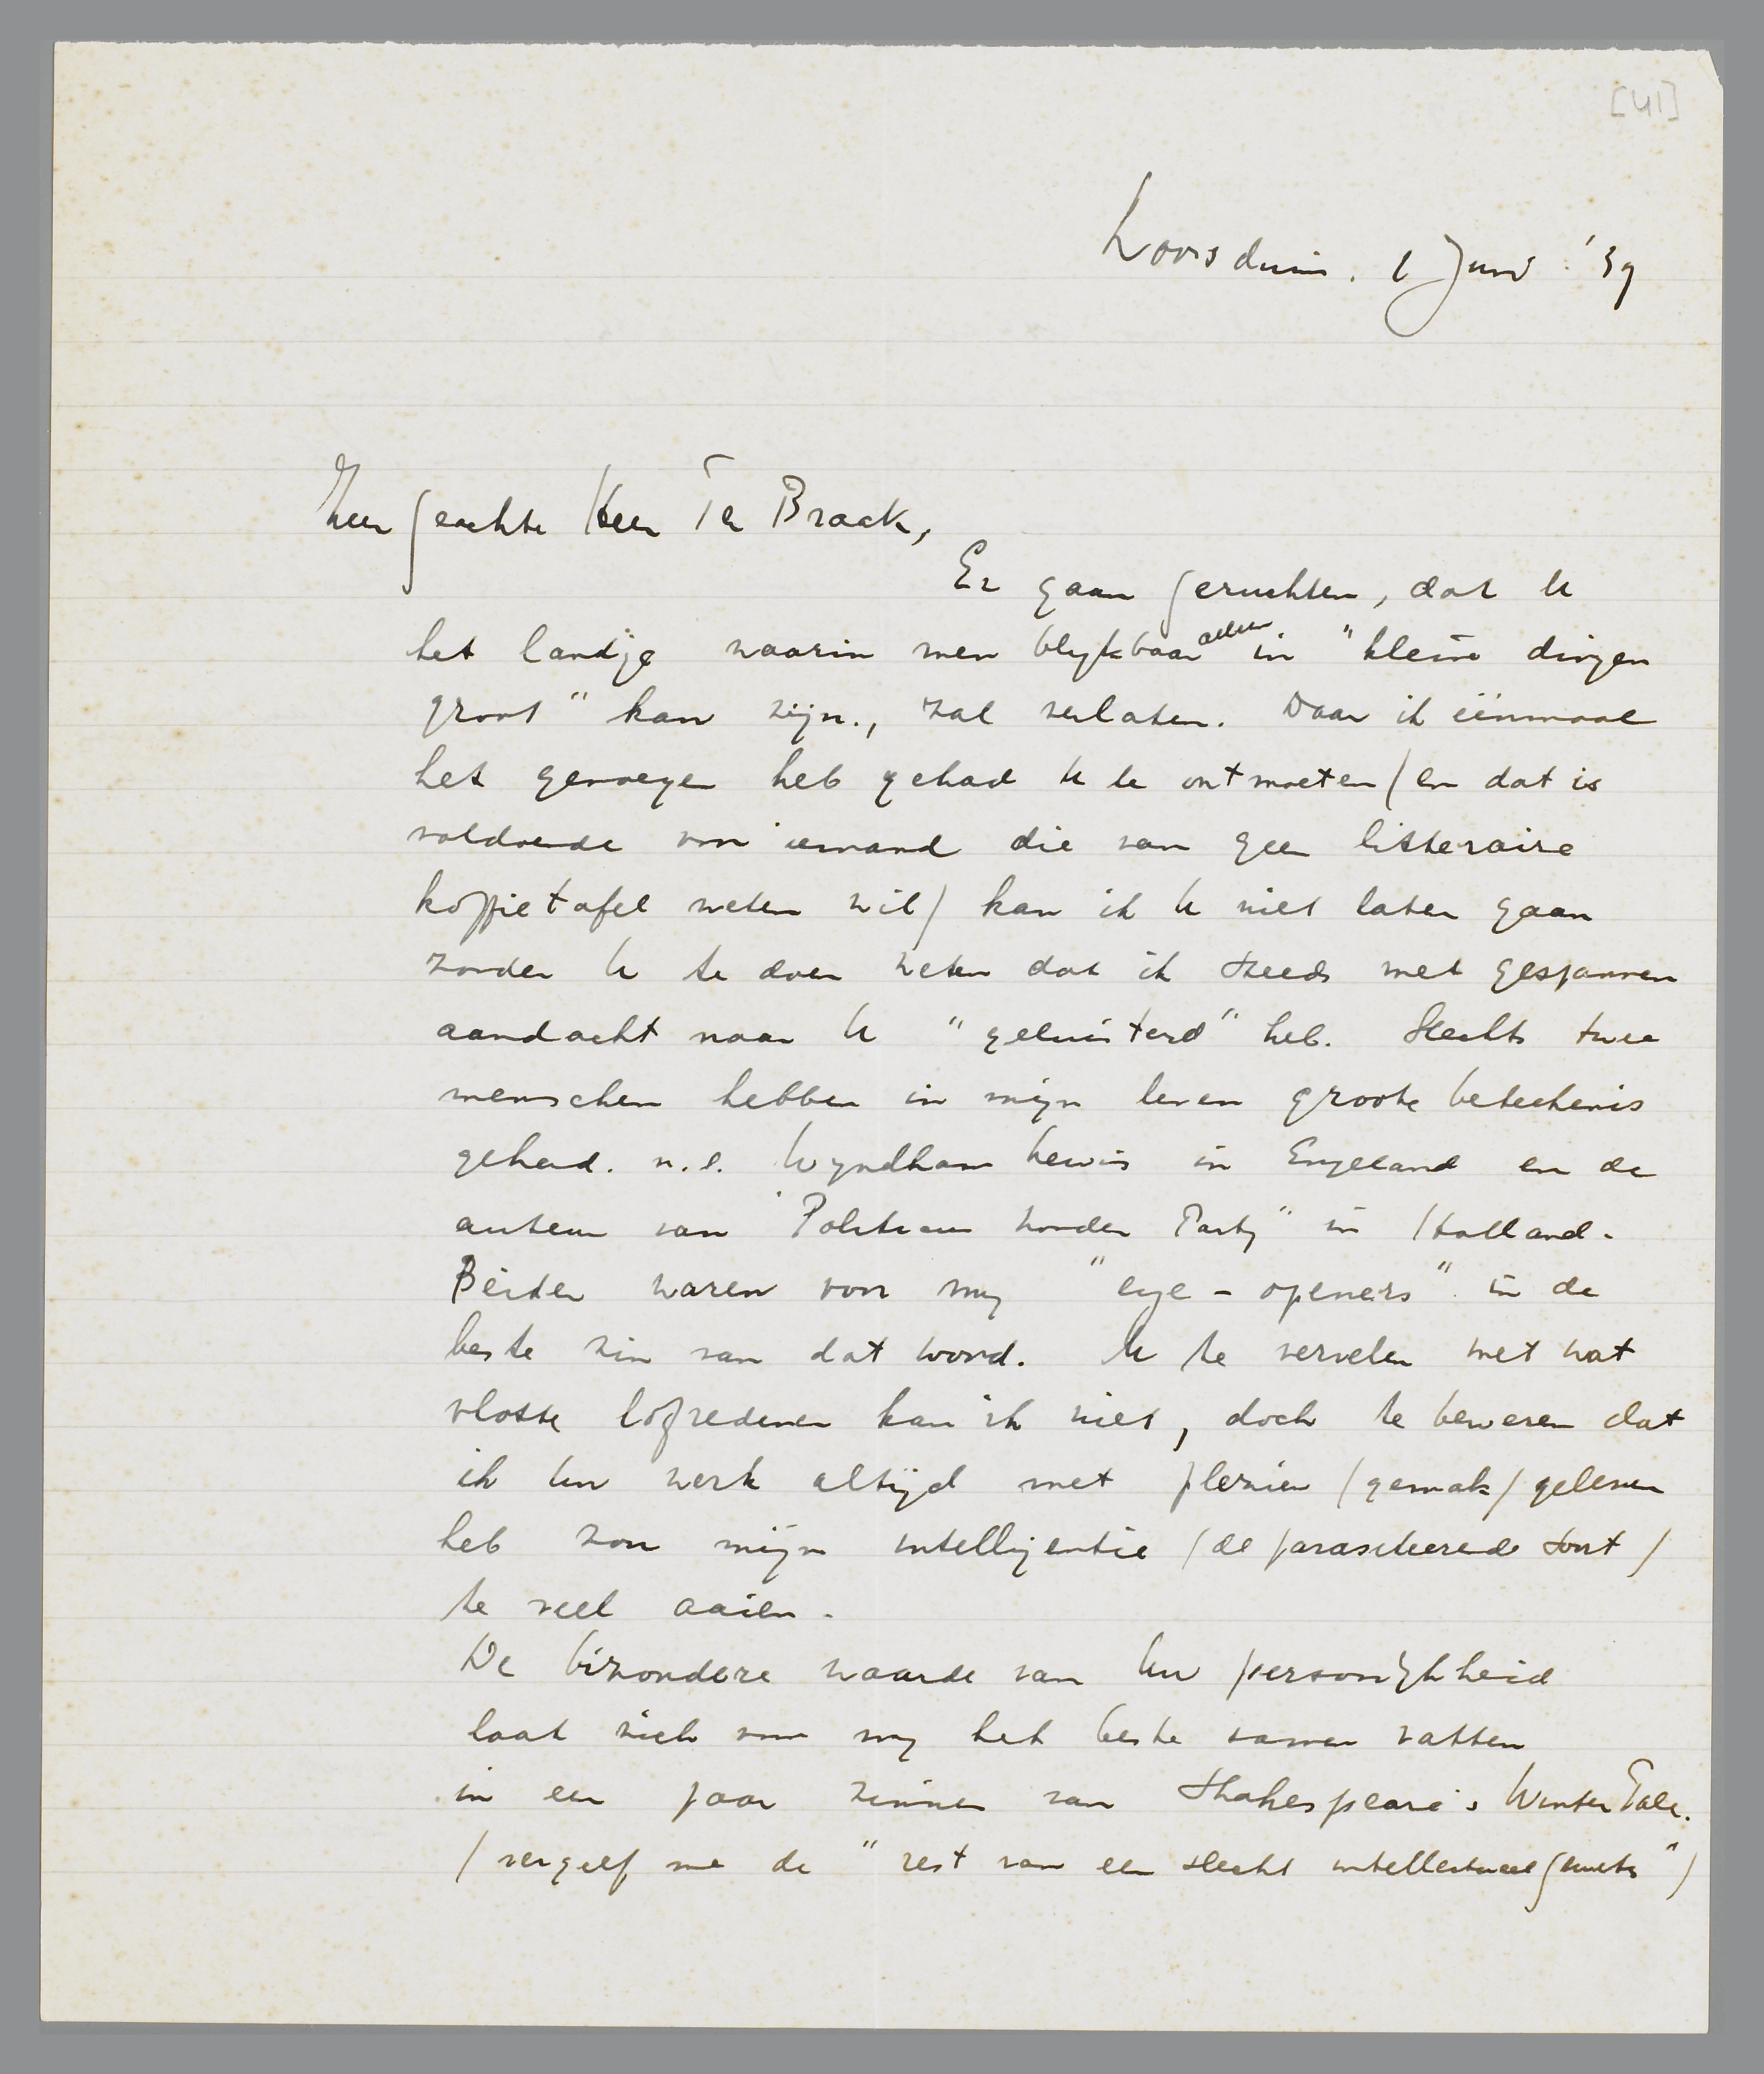 [41]
Loosduin. 1 Juni '39
Zeer geachte Heer Ter Braak,
Er gaan geruchten, dat U
het landje waarin men blijkbaar alleen in "kleine dingen
groot" kan zijn., zal verlaten. Daar ik éénmaal
het genoegen heb gehad U te ontmoeten (en dat is
voldoende voor iemand die van geen litteraire
koffietafel weten wil) kan ik U niet laten gaan
zonder U te doen weten dat ik steeds met gespannen
aandacht naar U "geluisterd" heb. Slechts twee
menschen hebben in mijn leven groote beteekenis
gehad. n.l. Wyndham Lewis in Engeland en de
auteur van "Politicus zonder Partij" in Holland.
Beiden waren voor mij "eye-openers" in de
beste zin van dat woord. U te vervelen met wat
vlotte lofredenen kan ik niet, doch te beweren dat
ik Uw werk altijd met plezier (gemak) gelezen
heb zou mijn intelligentie (de parasiteerende soort)
te veel aaien.
De bizondere waarde van Uw persoonlijkheid
laat zich voor mij het beste samen vatten
in een paar zinnen van Shakespeare's Winter Tale.
(vergeef me de "rest van een slecht intellectueel geweten")